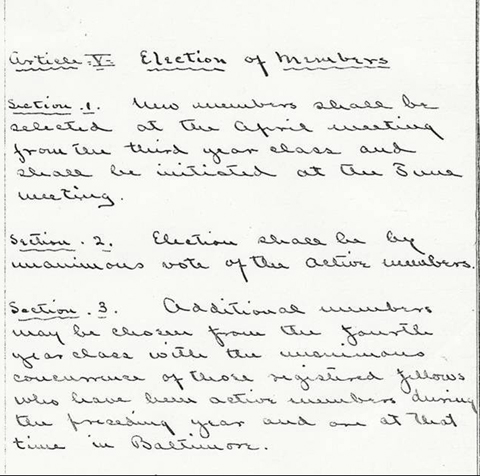 Article V. Election of Members
Section 1. New members shall be
selected at the April meeting
from the third year class and
shall be initiated at the June
meeting.
Section 2. Election shall be by
unanimous vote of the active members.
Section 3. Additional members
may be chosen from the fourth
year class with the unanimous
concurrence of those registered fellows
who have been active members during
the preceding year and are at that
time in Baltimore.